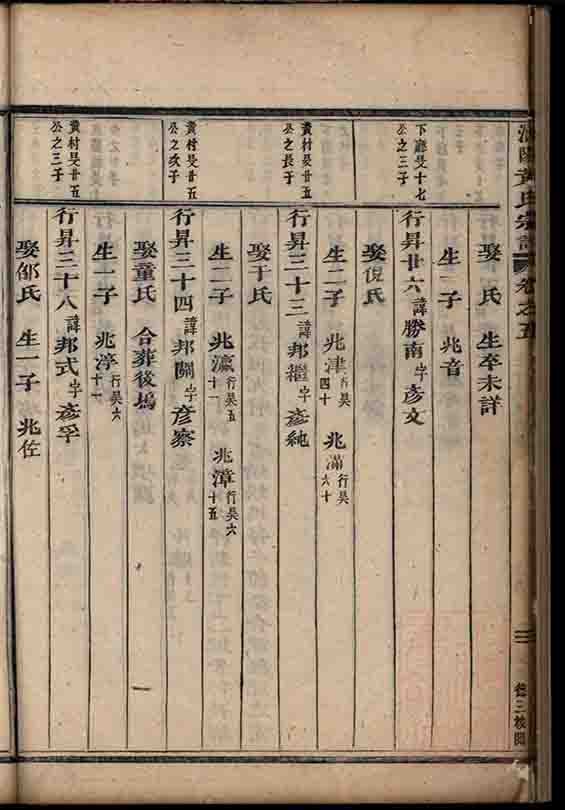 黃氏宗譜 卷之五
娶 氏 生卒未詳
生一子 兆音
下廳旻十七公之三子
行昇廿六諱勝南字彥文
娶倪氏
生二子 兆津行昊四十 兆滿行昊六十
黃村旻廿五公之長子
行昇三十三諱邦繼字彥純
娶于氏
生二子 兆瀛行昊五十一 兆漳行昊六十五
黃村旻廿五公之次子
行昇三十四諱邦關字彥察
娶童氏 合葬後塢
生一子 兆渟行昊六十一
黃村旻廿五公之三子
行昇三十八諱邦式字彥孚
娶邰氏 生一子 兆佐